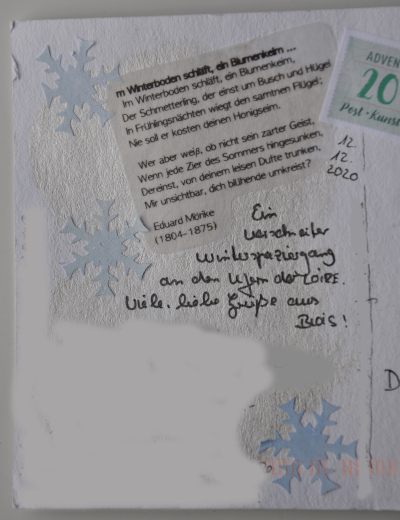 m Winterboden schläft, ein Blumenkeim ...
Im Winterboden schläft, ein Blumenkeim,
Der Schmetterling, der einst um Busch und Hügel
In Frühlingsnächten wiegt den samtnen Flügel;
Nie soll er kosten deinen Honigseim.
Wer aber weiß, ob nicht sein zarter Geist,
Wenn jede Zier des Sommers hingesunken,
Dereinst, von deinem leisen Dufte trunken,
Mir unsichtbar, dich blühende umkreist?
Eduard Mörike
(1804-1875)
ADVEN
20
Post-Kunst
12.
12.
2020
Ein
verschneiter
Winterspaziergang
an den Ufern der LOIRE.
Viele, liebe Grüße aus
Blois!
D